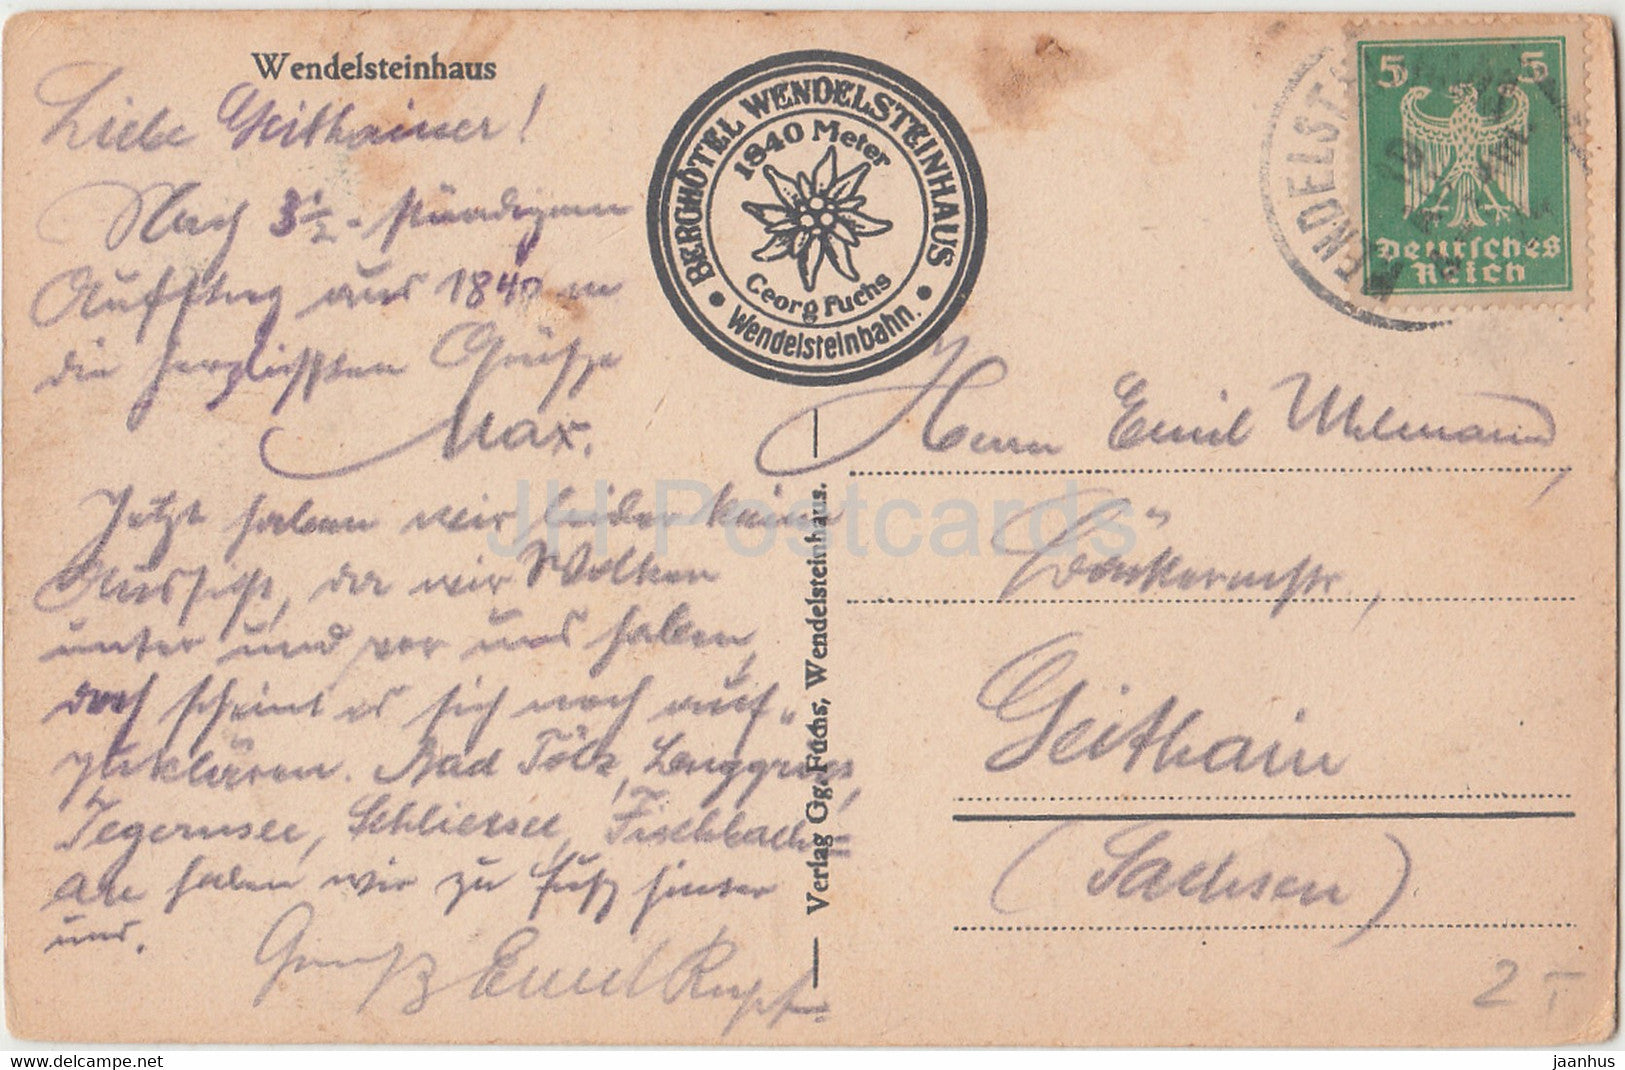 Wendelsteinhaus
Liebe Geithainer!
Nach 3½-stündigem
Aufstieg aus 1840 m
die herzlichsten Grüsse
Max.
Jetzt haben wir leider keine
Aussicht, da wir Wolken
unter und vor uns haben,
doch scheint es sich noch auf-
zuklären. Bad Tölz, Lenggries,
Tegernsee, Schliersee, Fischbach=
au haben wir zu Fuß hinter
uns.
Gruß Emil Rupf.
BERGHÔTEL WENDELSTEINHAUS
1840 Meter
Georg Fuchs
• Wendelsteinbahn. •
Verlag Gg. Fuchs, Wendelsteinhaus.
WENDELST
5 5
Deutsches
Reich
Herrn Emil Uhlmann,
Bäckermstr.,
Geithain
(Sachsen)
2.-
JH Postcards
https://www.delcampe.net
jaanhus